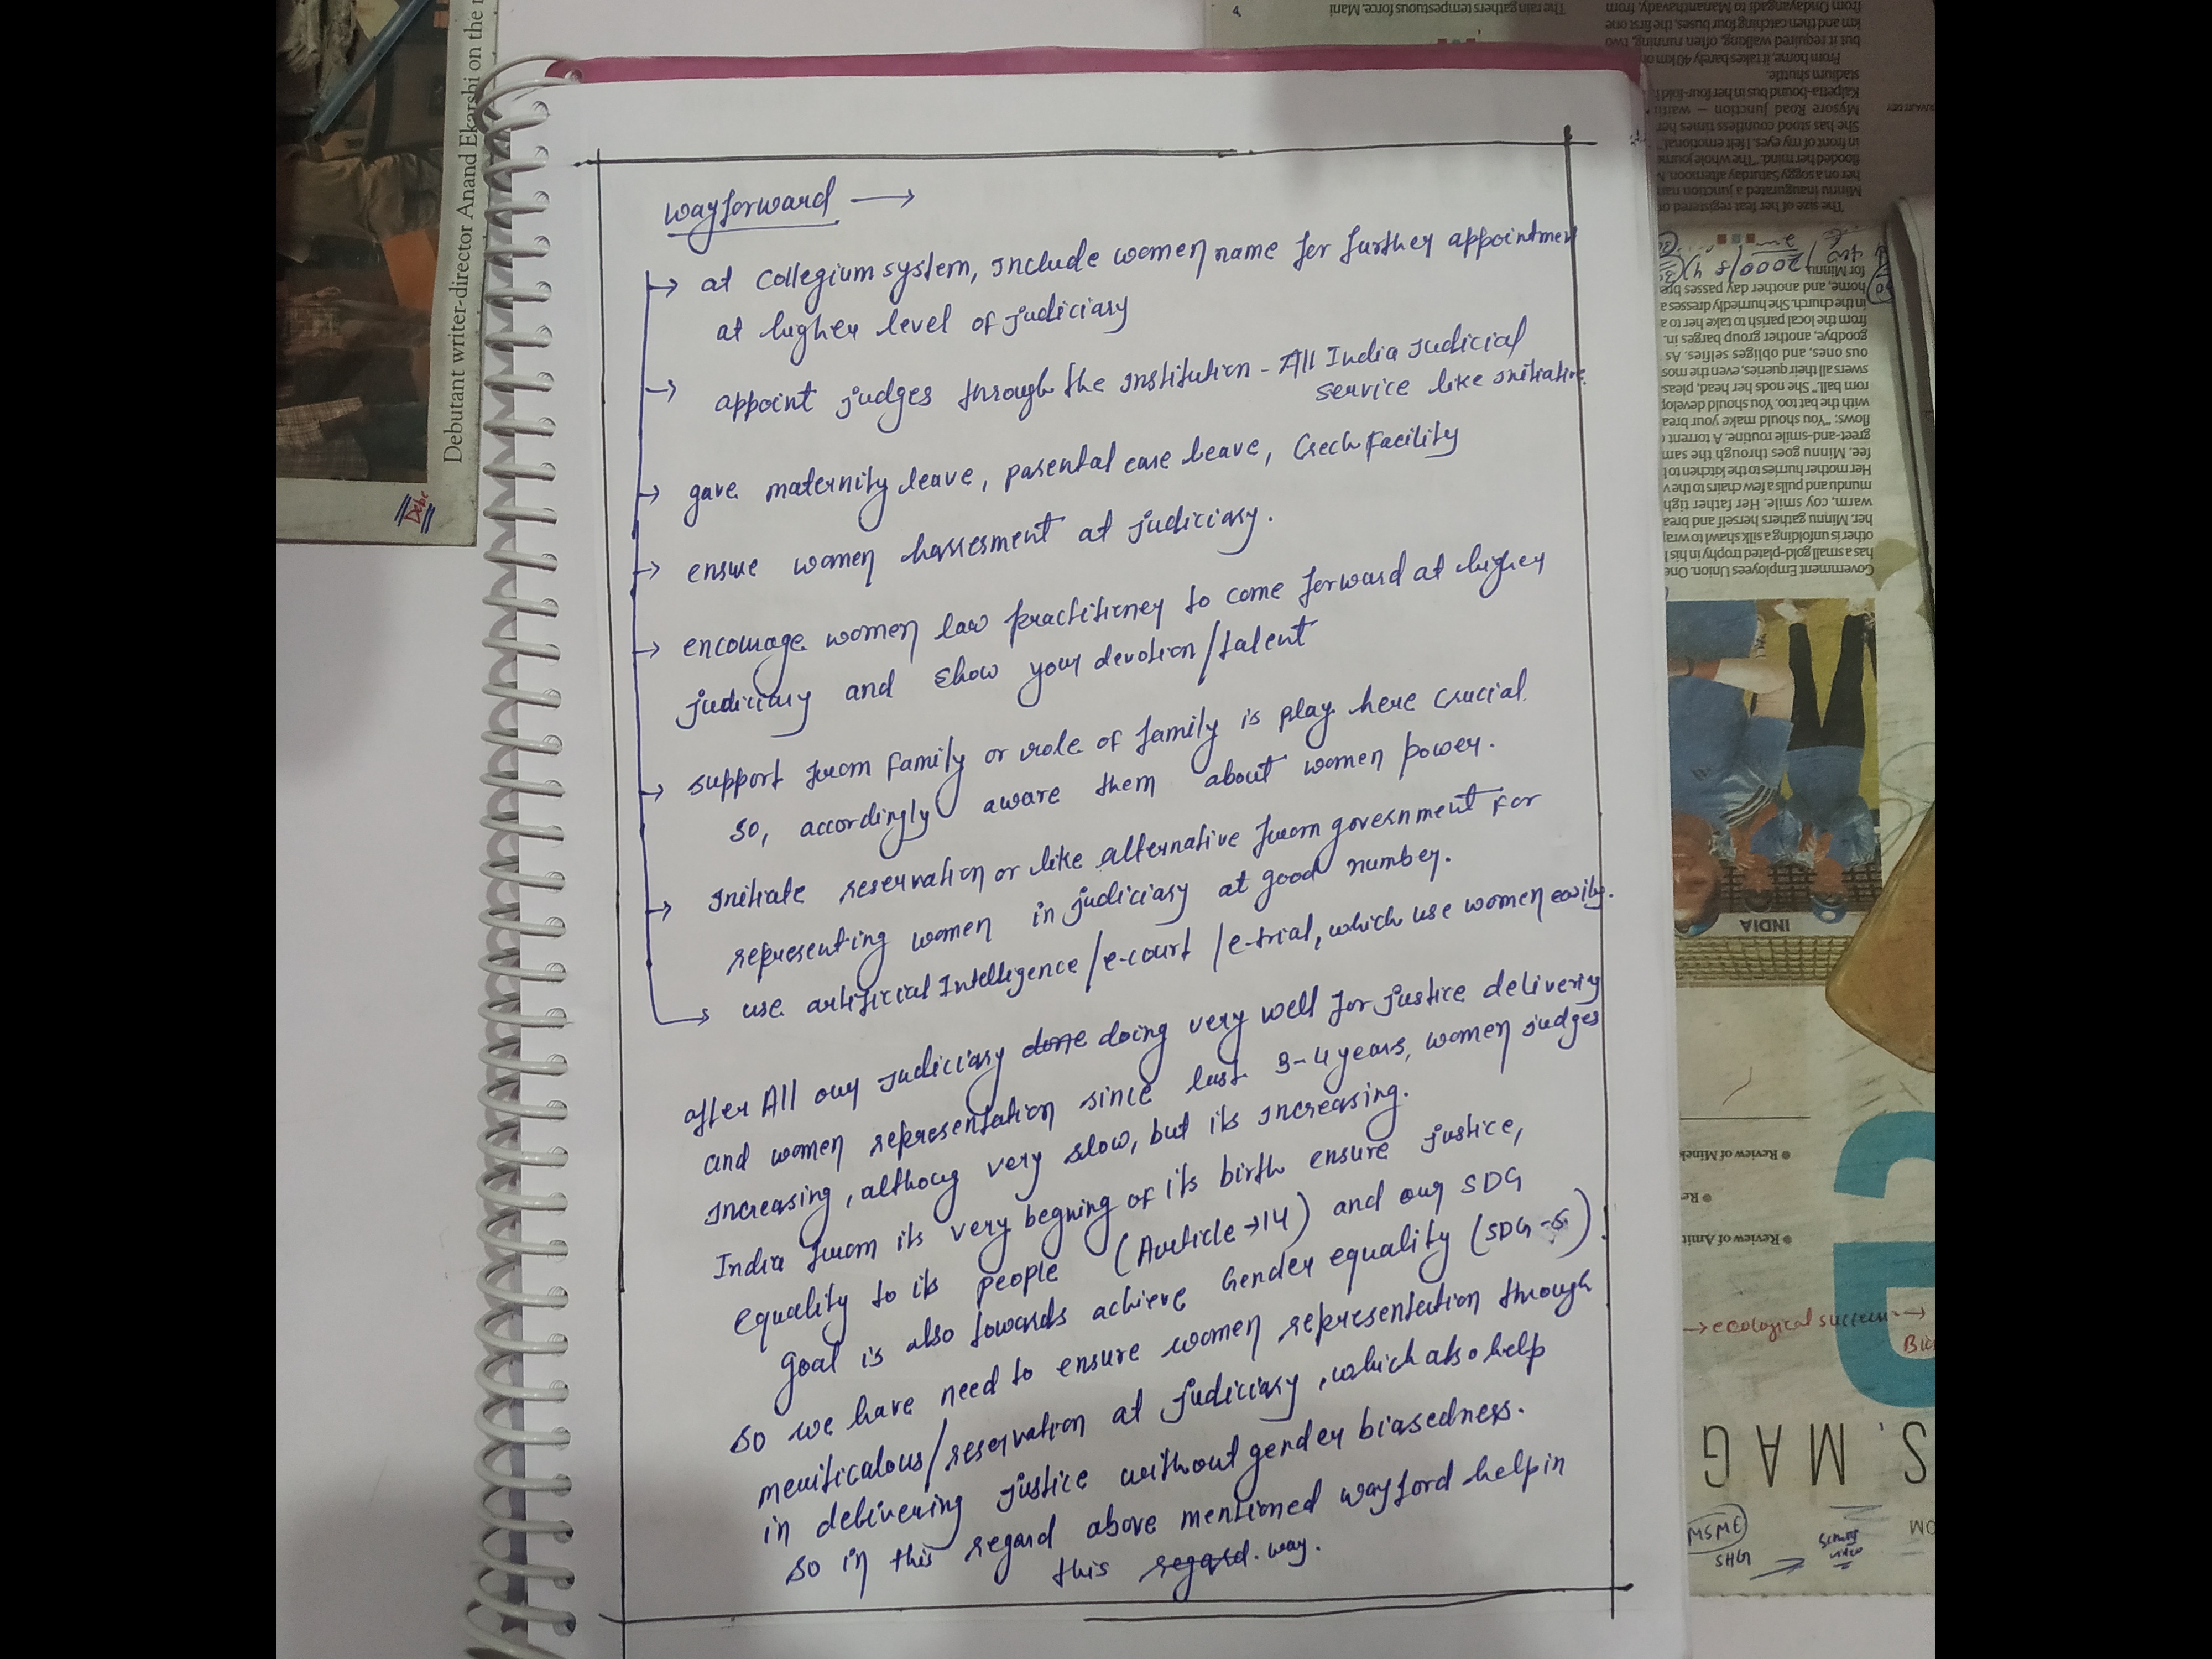 Wayforward →
→ at Collegium system, Include women name for further appointmen
at higher level of judiciary
→ appoint judges through the Institution - All India Judicial
Service like initiative.
→ gave maternity leave, parental care leave, Crech Facility
→ ensure women harresment at judiciary.
→ encourage women law practitioner to come forward at higher
judiciary and show your devotion/talent
→ support from family or role of family is play here crucial.
So, accordingly aware them about women power.
→ Initiate reservation or like alternative from government For
representing women in judiciary at good number.
→ use artificial Intelligence /e-court /e-trial, which use women easily.
after All our Judiciary done doing very well for justice delivering
and women representation since last 3-4 years, women judges
Increasing, althoug very slow, but its increasing.
India from its very begning of its birth ensure justice,
equality to its people (Article →14) and our SDG
goal is also towards achieve Gender equality (SDG-5).
So we have need to ensure women representation through
meriticalous/reservation at judiciary, which also help
in delivering justice without gender biasedness.
So in this regard above mentioned wayford help in
this regard. way.
Debutant writer-director Anand Ekarshi on the
Debe
The rain gathers tempestuous force. Mani
from Ondayangadi to Mananthavady, from
km and then catching four buses, the first one
but it required walking, often running, two
From home, it takes barely 40 km
stadium shuttle.
Kalpetta-bound bus in her four-fold
Mysore Road Junction — waiti
She has stood countless times her
in front of my eyes. I felt emotional,"
flooded her mind. "The whole journ
her on a soggy Saturday afternoon.
Minnu inaugurated a junction nam
The size of her feat registered
for Minnu
home, and another day passes
in the church. She hurriedly dresses
from the local parish to take her to a
goodbye, another group barges in.
ous ones, and obliges selfies. As
swers all their queries, even the mos
rom ball." She nods her head, pleas
with the bat too. You should develop
flows: "You should make your brea
greet-and-smile routine. A torrent
fee. Minnu goes through the sam
Her mother hurries to the kitchen to
mundu and pulls a few chairs to the v
warm, coy smile. Her father tigh
her. Minnu gathers herself and brea
other is unfolding a silk shawl to wra
has a small gold-plated trophy in his
Government Employees Union. One
INDIA
● Review of Minek
● Re
● Review of Amit
→ ecological success →
S, MAG
MSME
SHG